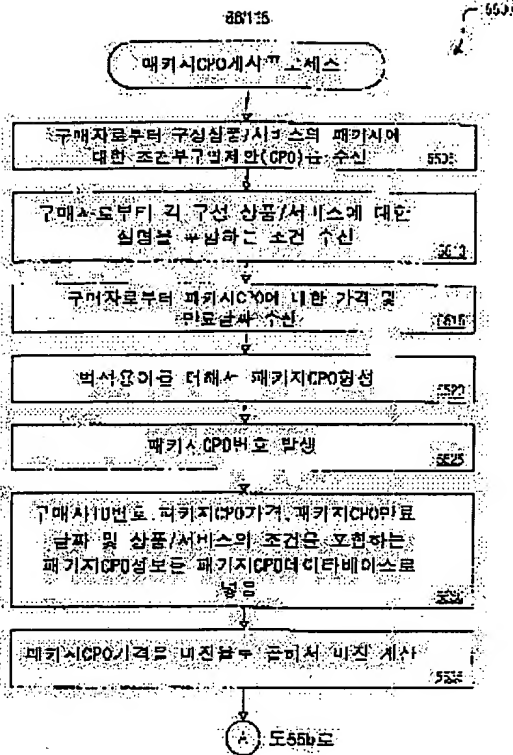 66/115
5500
패키지CPO게시프로세스
구매자로부터 구성상품/서비스의 패키지에
대한 조건부구매제안(CPO)을 수신 5505
구매자로부터 각 구성 상품/서비스에 대한
설명을 포함하는 조건 수신
5510
구매자로부터 패키지CPO에 대한 가격 및
만료날짜 수신 5515
법적용어를 더해서 패키지CPO형성
5520
패키지CPO번호 발생
5525
구매자ID번호 패키지CPO가격, 패키지CPO만료
날짜 및 상품/서비스의 조건을 포함하는
패키지CPO정보를 패키지CPO데이타베이스로
넣음
5530
패키지CPO가격을 마진율로 곱해서 마진 계산
5535
A 도55b로